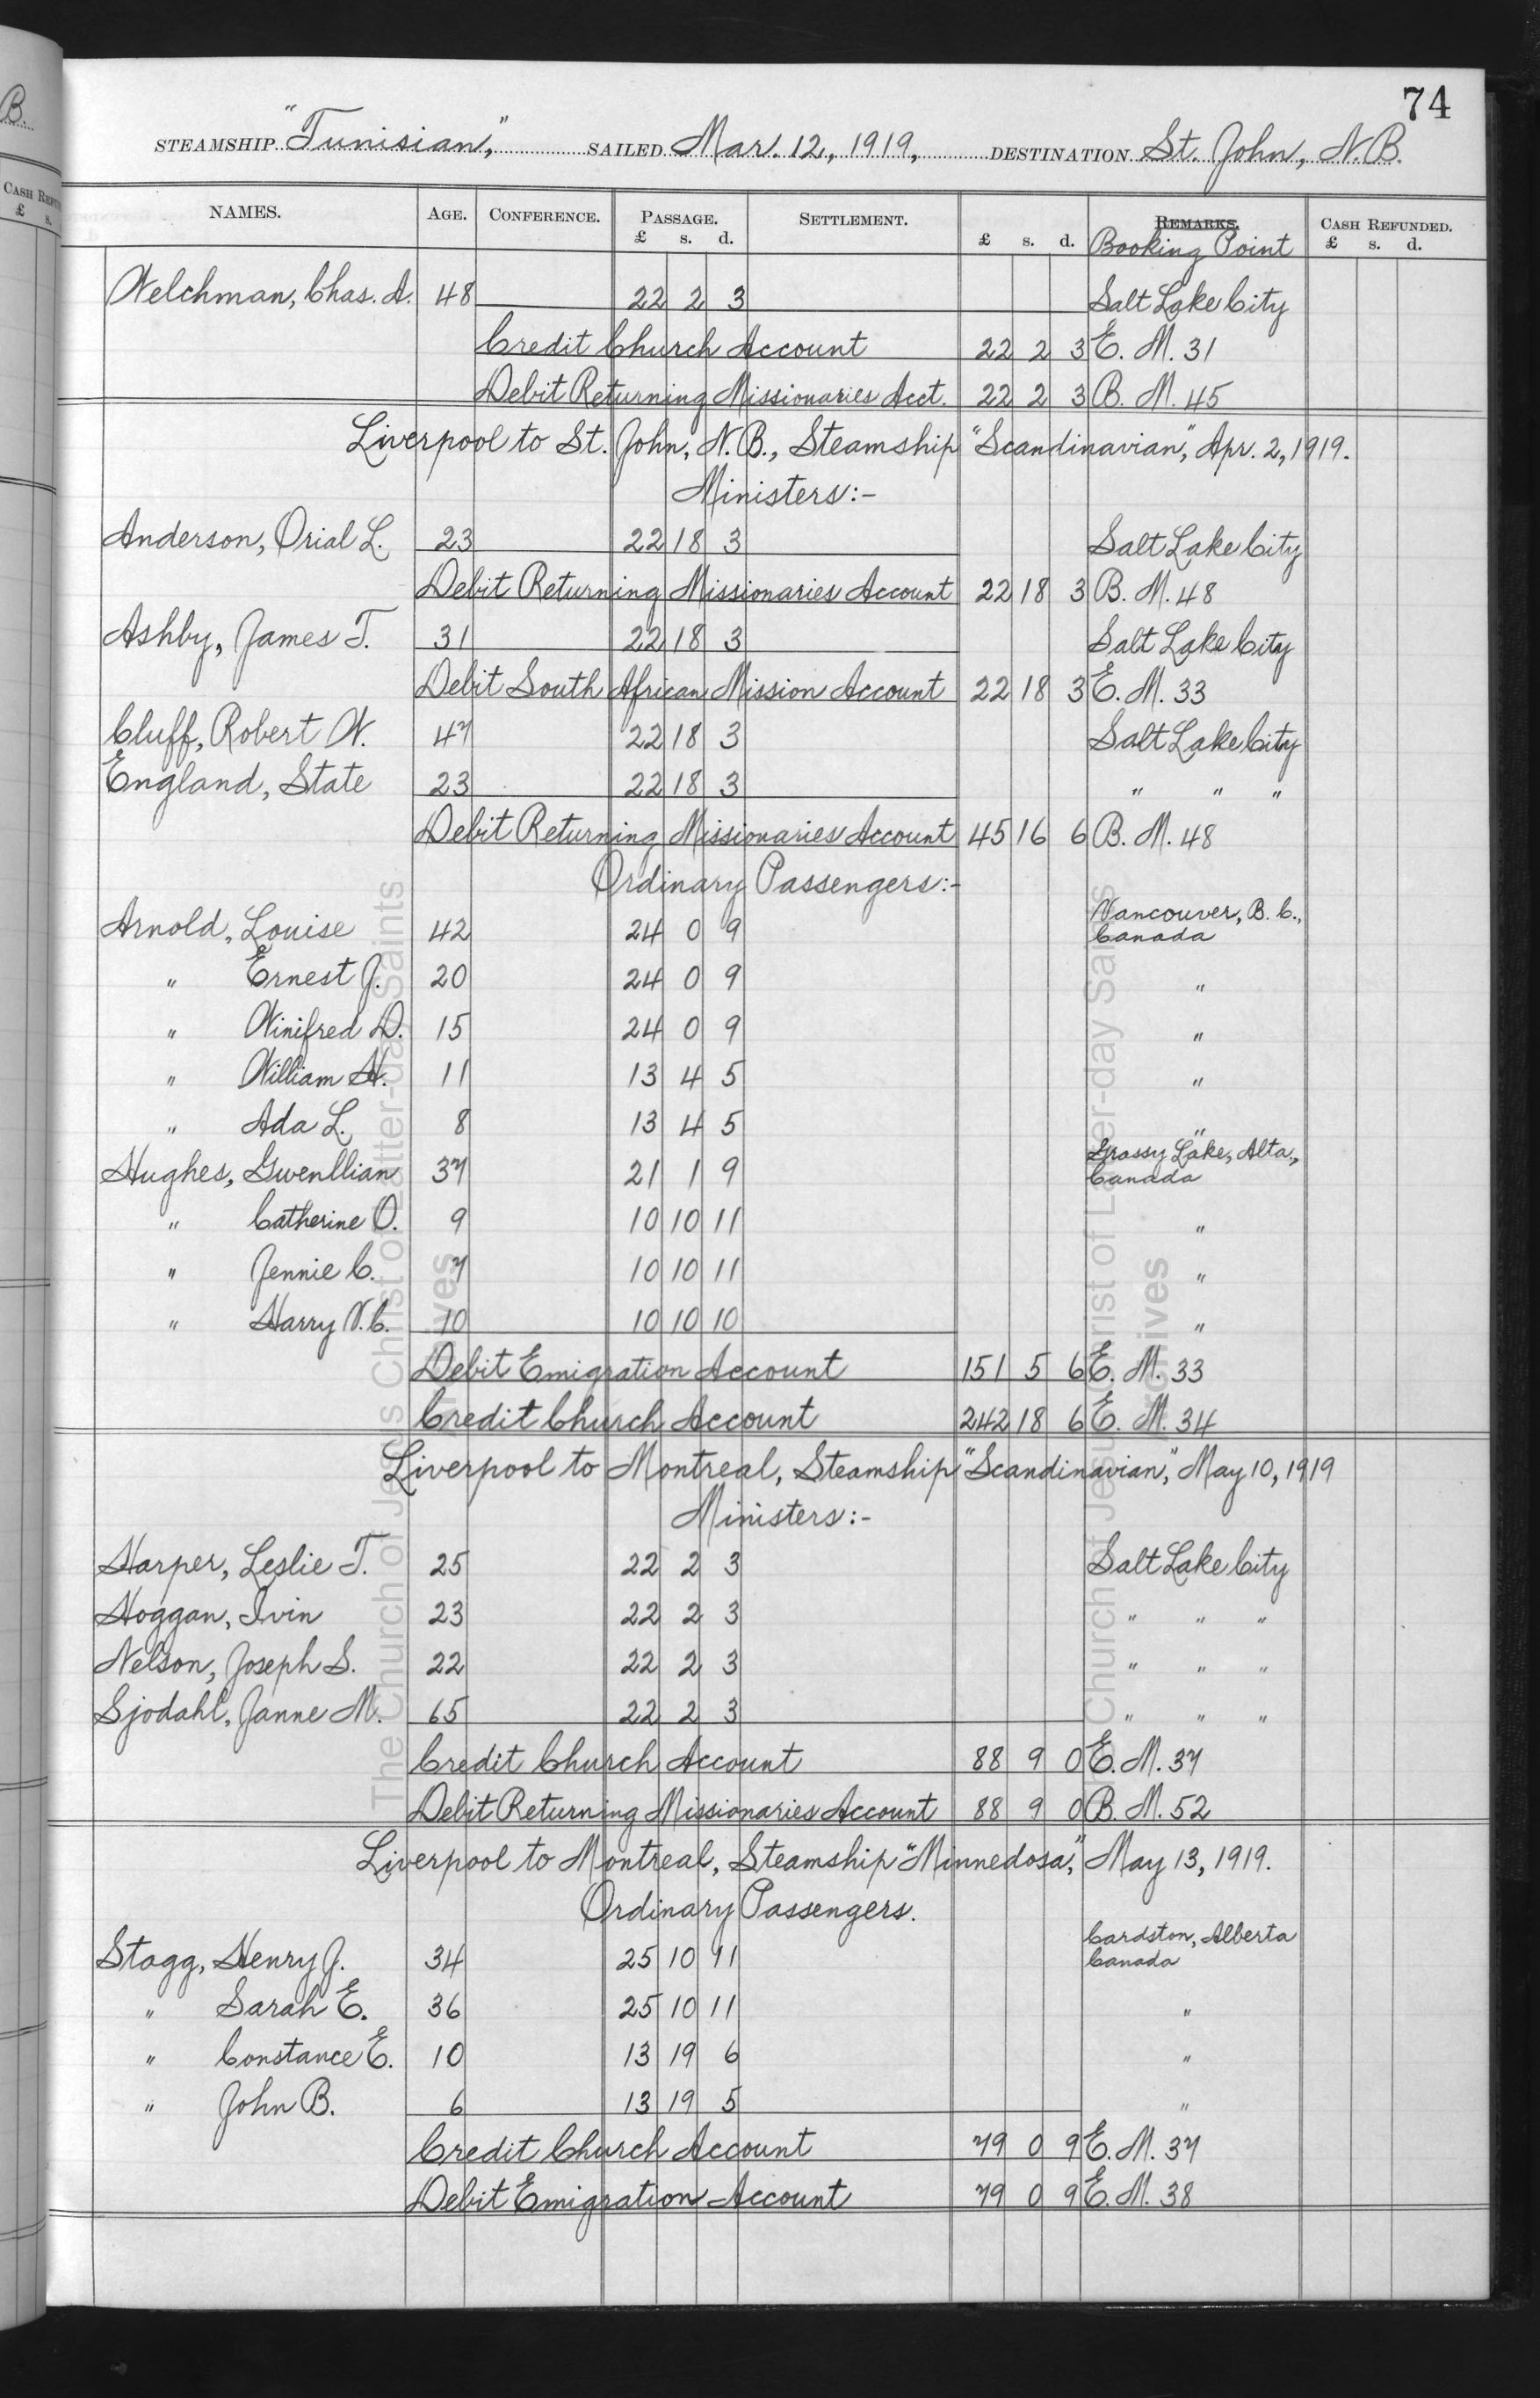 74
STEAMSHIP "Tunisian," SAILED Mar. 12, 1919, DESTINATION St. John, N.B.
NAMES. AGE. CONFERENCE. PASSAGE. £ s. d. SETTLEMENT. £ s. d. REMARKS. Booking Point CASH REFUNDED. £ s. d.
Welchman, Chas. A. 48 22 2 3 Salt Lake City
Credit Church Account 22 2 3 E. M. 31
Debit Returning Missionaries Acct. 22 2 3 B. M. 45
Liverpool to St. John, N.B., Steamship "Scandinavian", Apr. 2, 1919.
Ministers:-
Anderson, Orial L. 23 22 18 3 Salt Lake City
Debit Returning Missionaries Account 22 18 3 B. M. 48
Ashby, James T. 31 22 18 3 Salt Lake City
Debit South African Mission Account 22 18 3 E. M. 33
Cluff, Robert W. 47 22 18 3 Salt Lake City
England, State 23 22 18 3 " " "
Debit Returning Missionaries Account 45 16 6 B. M. 48
Ordinary Passengers:-
Arnold, Louise 42 24 0 9 Vancouver, B. C., Canada
" Ernest J. 20 24 0 9 "
" Winifred D. 15 24 0 9 "
" William H. 11 13 4 5 "
" Ada L. 8 13 4 5 "
Hughes, Gwenllian 37 21 1 9 Grassy Lake, Alta., Canada
" Catherine O. 9 10 10 11 "
" Jennie C. 7 10 10 11 "
" Harry V. C. 10 10 10 10 "
Debit Emigration Account 151 5 6 E. M. 33
Credit Church Account 242 18 6 E. M. 34
Liverpool to Montreal, Steamship "Scandinavian", May 10, 1919
Ministers:-
Harper, Leslie T. 25 22 2 3 Salt Lake City
Hoggan, Ivin 23 22 2 3 " " "
Nelson, Joseph S. 22 22 2 3 " " "
Sjodahl, Janne M. 65 22 2 3 " " "
Credit Church Account 88 9 0 E. M. 37
Debit Returning Missionaries Account 88 9 0 B. M. 52
Liverpool to Montreal, Steamship "Minnedosa", May 13, 1919.
Ordinary Passengers.
Stagg, Henry J. 34 25 10 11 Cardston, Alberta Canada
" Sarah E. 36 25 10 11 "
" Constance E. 10 13 19 6 "
" John B. 6 13 19 5 "
Credit Church Account 79 0 9 E. M. 37
Debit Emigration Account 79 0 9 E. M. 38
B.
CASH
£ s.
The Church of Jesus Christ of Latter-day Saints
Archives
The Church of Jesus Christ of Latter-day Saints
Archives